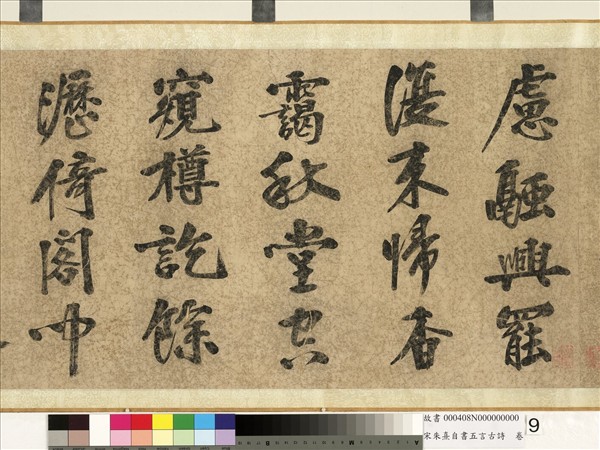 慮融興罷
來歸杳
靄秋堂空
窺樽訖餘
瀝倚閣
故書 000408N000000000
宋朱熹自書五言古詩 卷
9